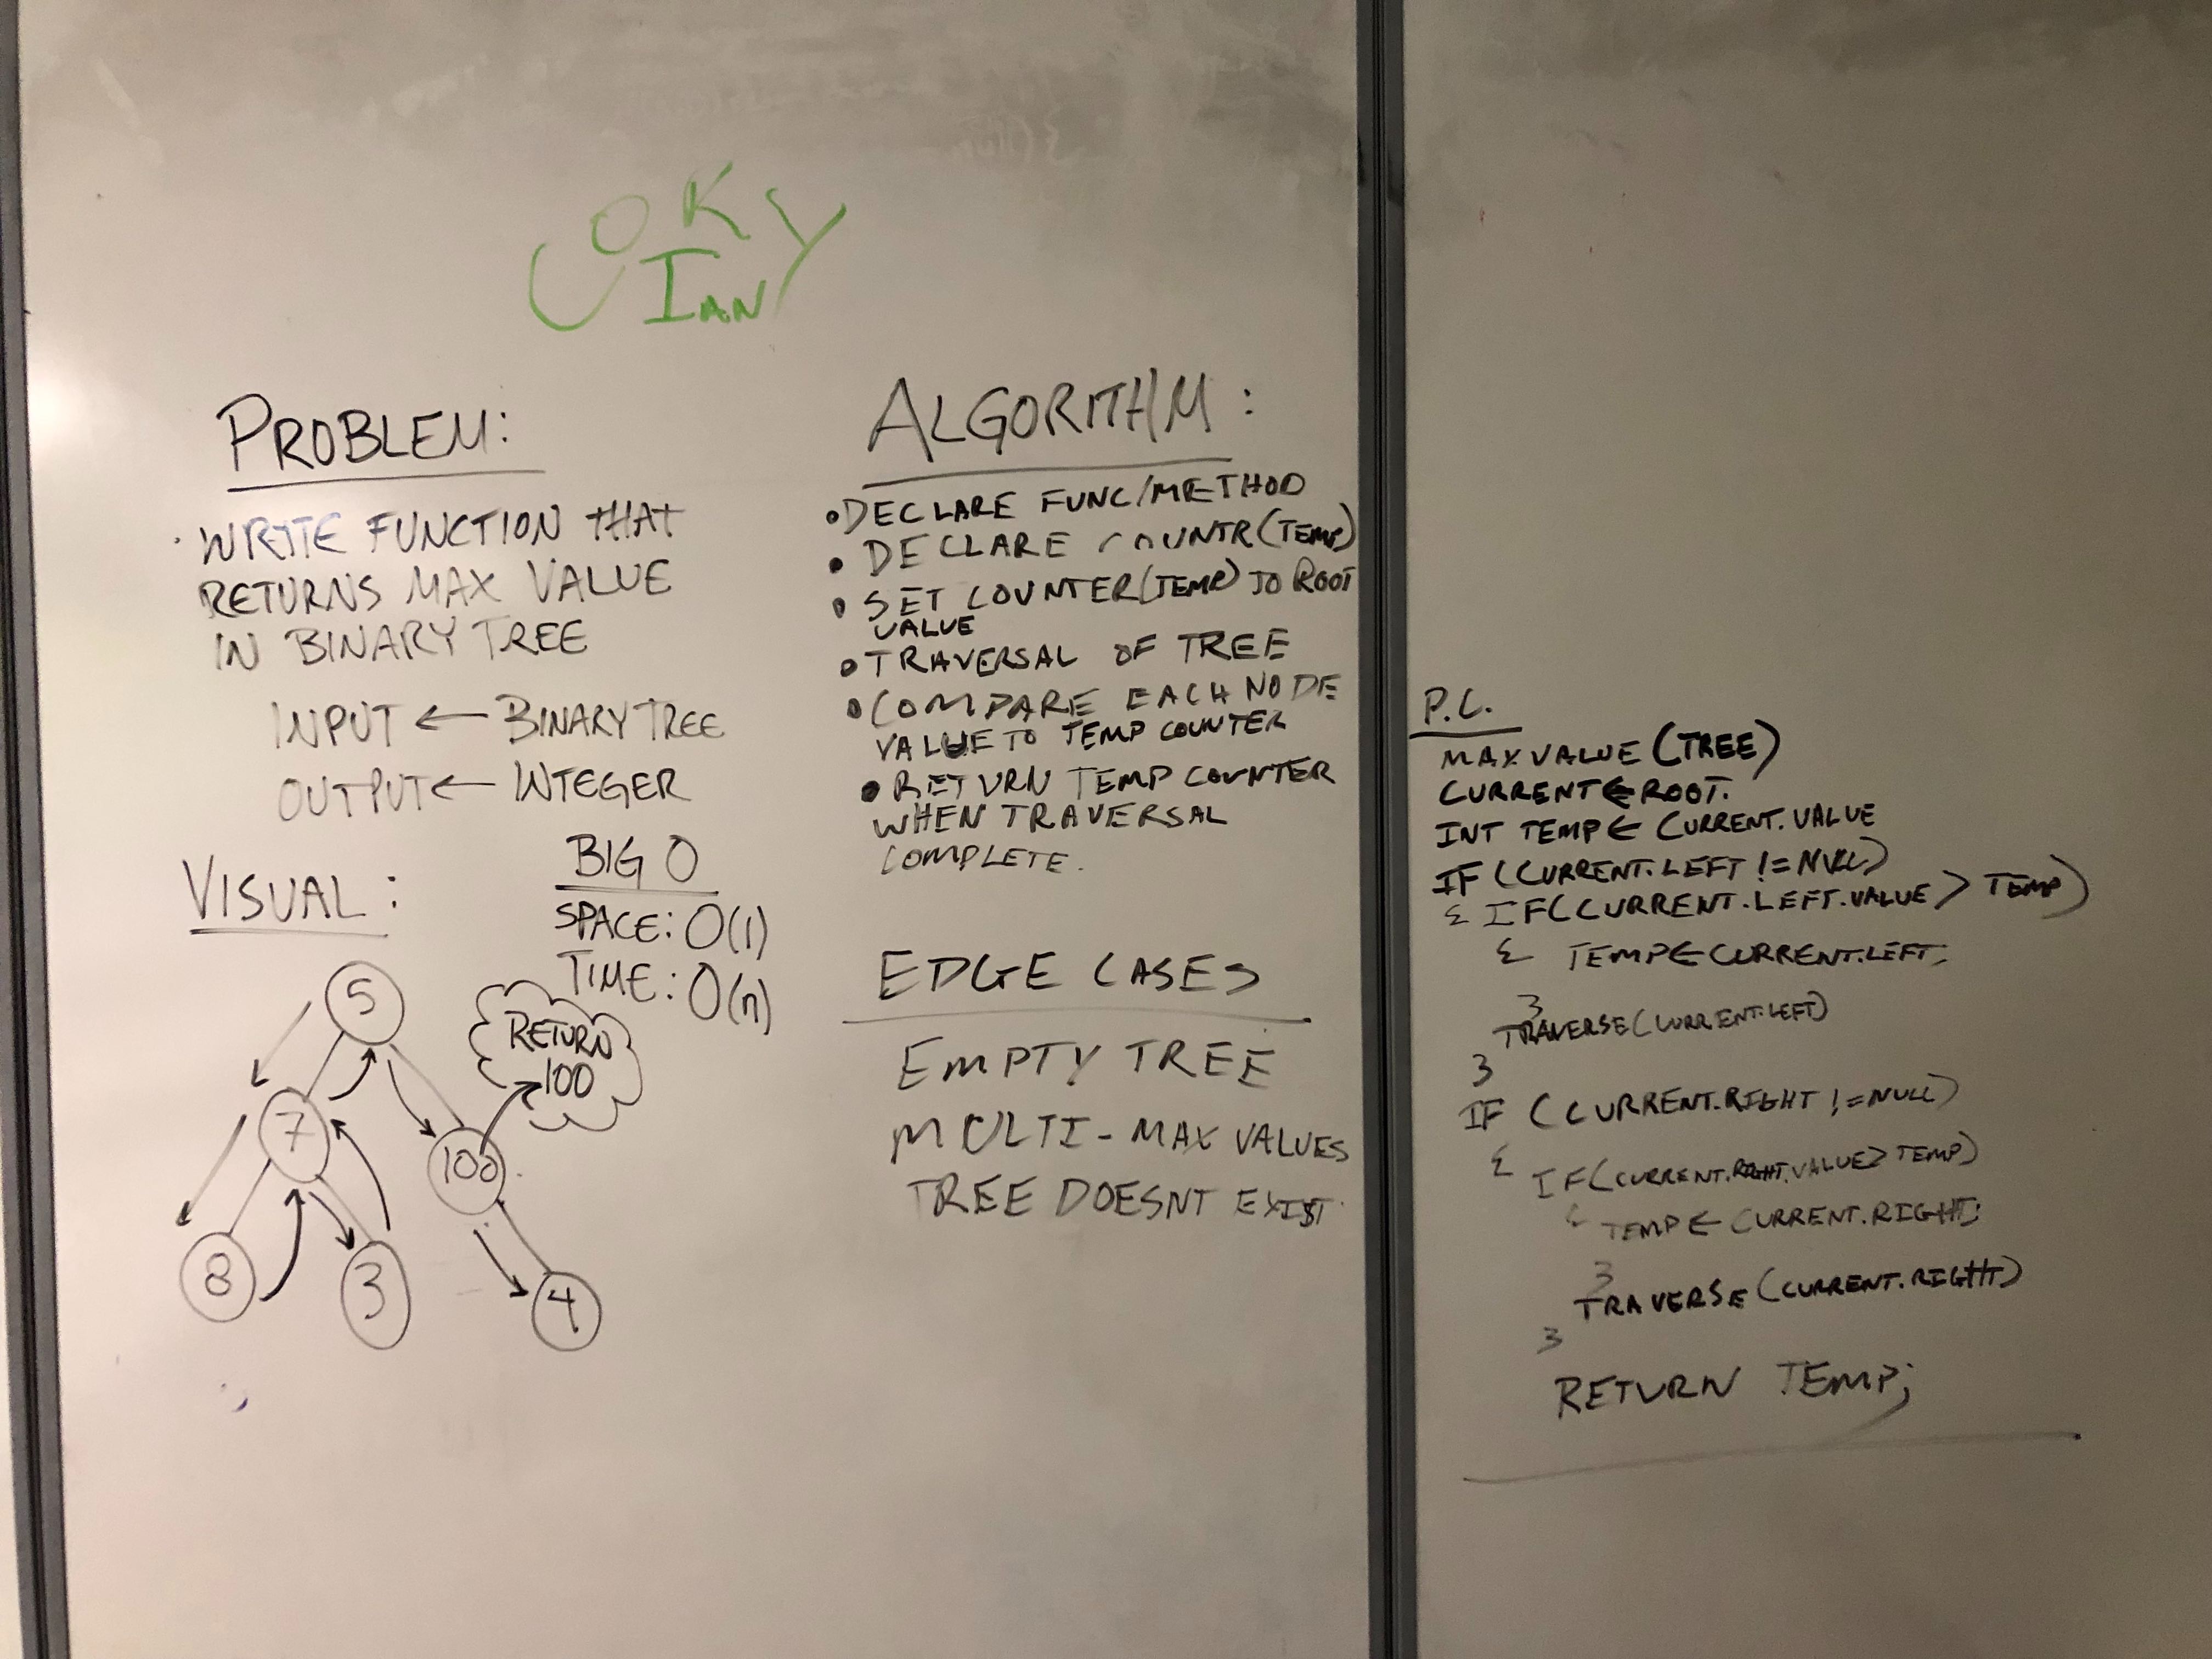 OK
IAN
PROBLEM:
WRITE FUNCTION THAT
RETURNS MAX VALUE
IN BINARY TREE
INPUT ← BINARY TREE
OUTPUT ← INTEGER
VISUAL:
BIG O
SPACE: O(1)
TIME: O(n)
5
7
100
8
3
4
RETURN
100
ALGORITHM:
• DECLARE FUNC/METHOD
• DECLARE COUNTR(TEMP)
• SET COUNTER(TEMP) TO ROOT
VALUE
• TRAVERSAL OF TREE
• COMPARE EACH NODE
VALUE TO TEMP COUNTER
• RETURN TEMP COUNTER
WHEN TRAVERSAL
COMPLETE.
EDGE CASES
EMPTY TREE
MULTI-MAX VALUES
TREE DOESNT EXIST
P.C.
MAXVALUE (TREE)
CURRENT ← ROOT.
INT TEMP ← CURRENT.VALUE
IF (CURRENT.LEFT != NULL)
{ IF(CURRENT.LEFT.VALUE > TEMP)
{ TEMP ← CURRENT.LEFT;
}
TRAVERSE(CURRENT.LEFT)
}
IF (CURRENT.RIGHT != NULL)
{ IF(CURRENT.RIGHT.VALUE > TEMP)
{ TEMP ← CURRENT.RIGHT;
}
TRAVERSE (CURRENT.RIGHT)
}
RETURN TEMP;